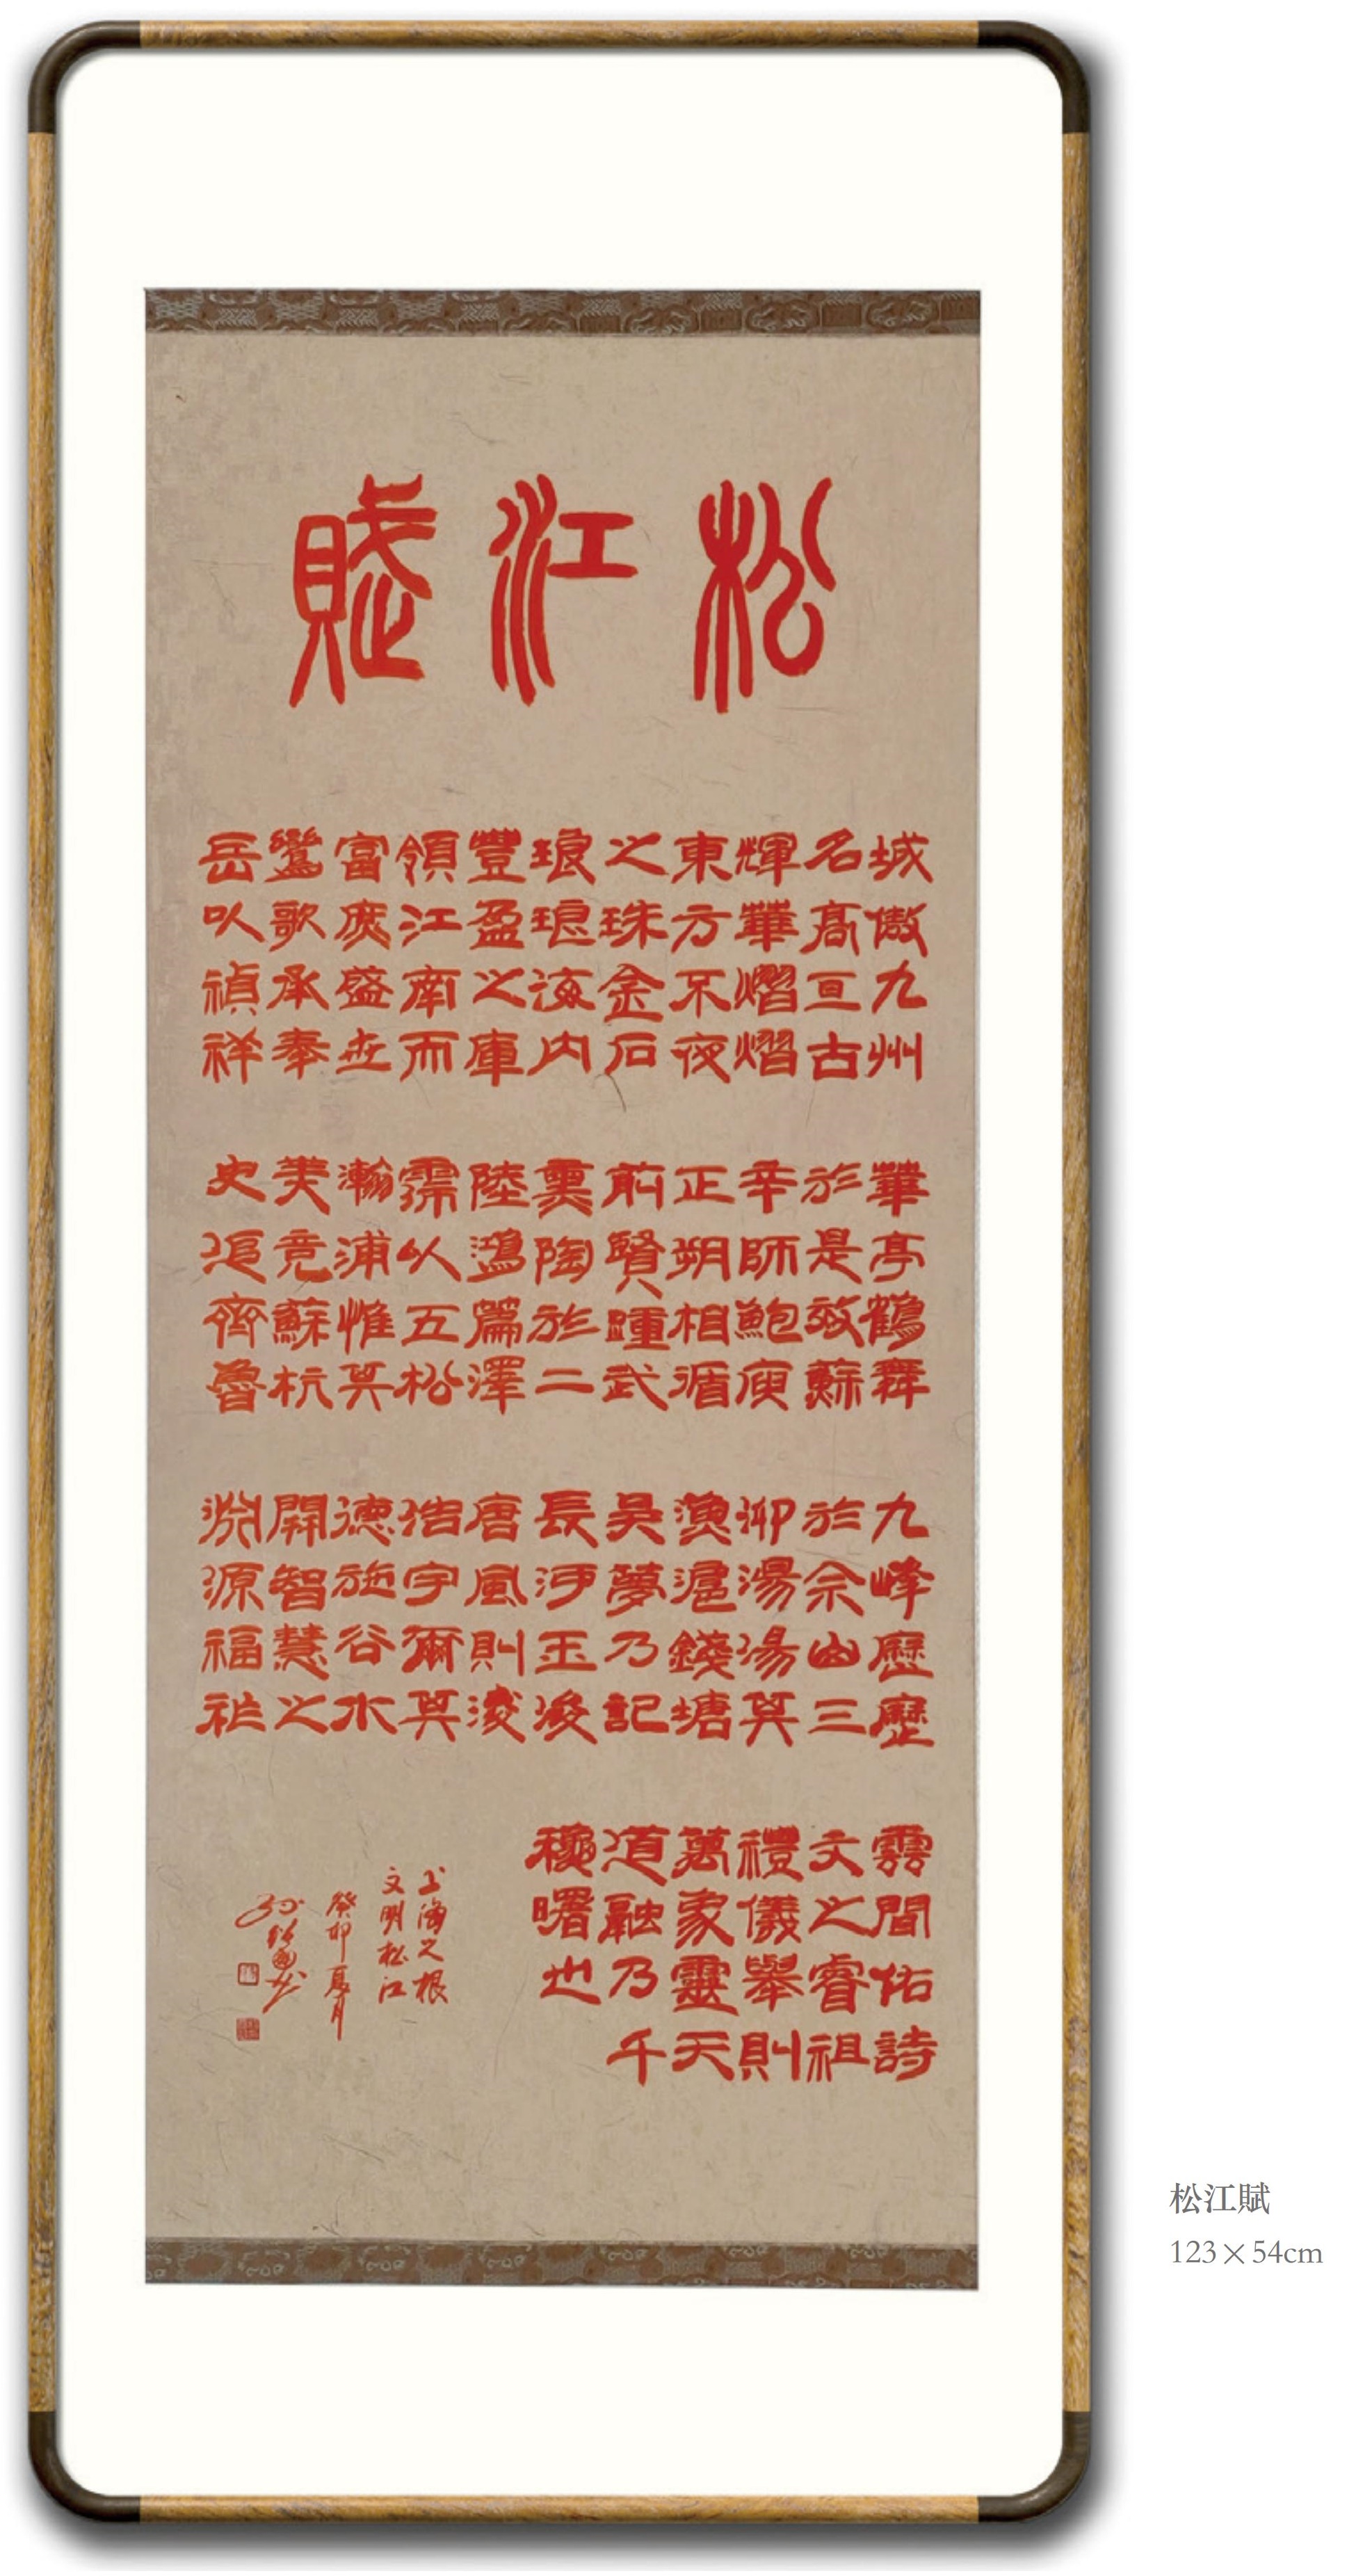 松江賦
城傲九州
名高亘古
輝華熠熠
東方不夜
之珠金石
琅琅海内
豐盈之庫
領江南而
富庶盛世
歌承奉
岳以禎祥
華亭鶴舞
於是效蘇
辛師鮑庾
正朔相循
前賢踵武
熏陶於二
陸鴻篇澤
霈以五松
瀚浦惟其
美竞蘇杭
史追齊魯
九峰歷歷
於佘山三
泖湯湯其
演滬錢塘
吳夢乃記
長河玉峻
唐風則淩
浩宇爾其
德施谷水
開智慧之
淵源福祉
雲間佑詩
文之睿祖
禮儀舉則
萬象靈天
道融乃千
穐曙也
上海之根
文明松江
癸卯夏月
松江賦
123×54cm